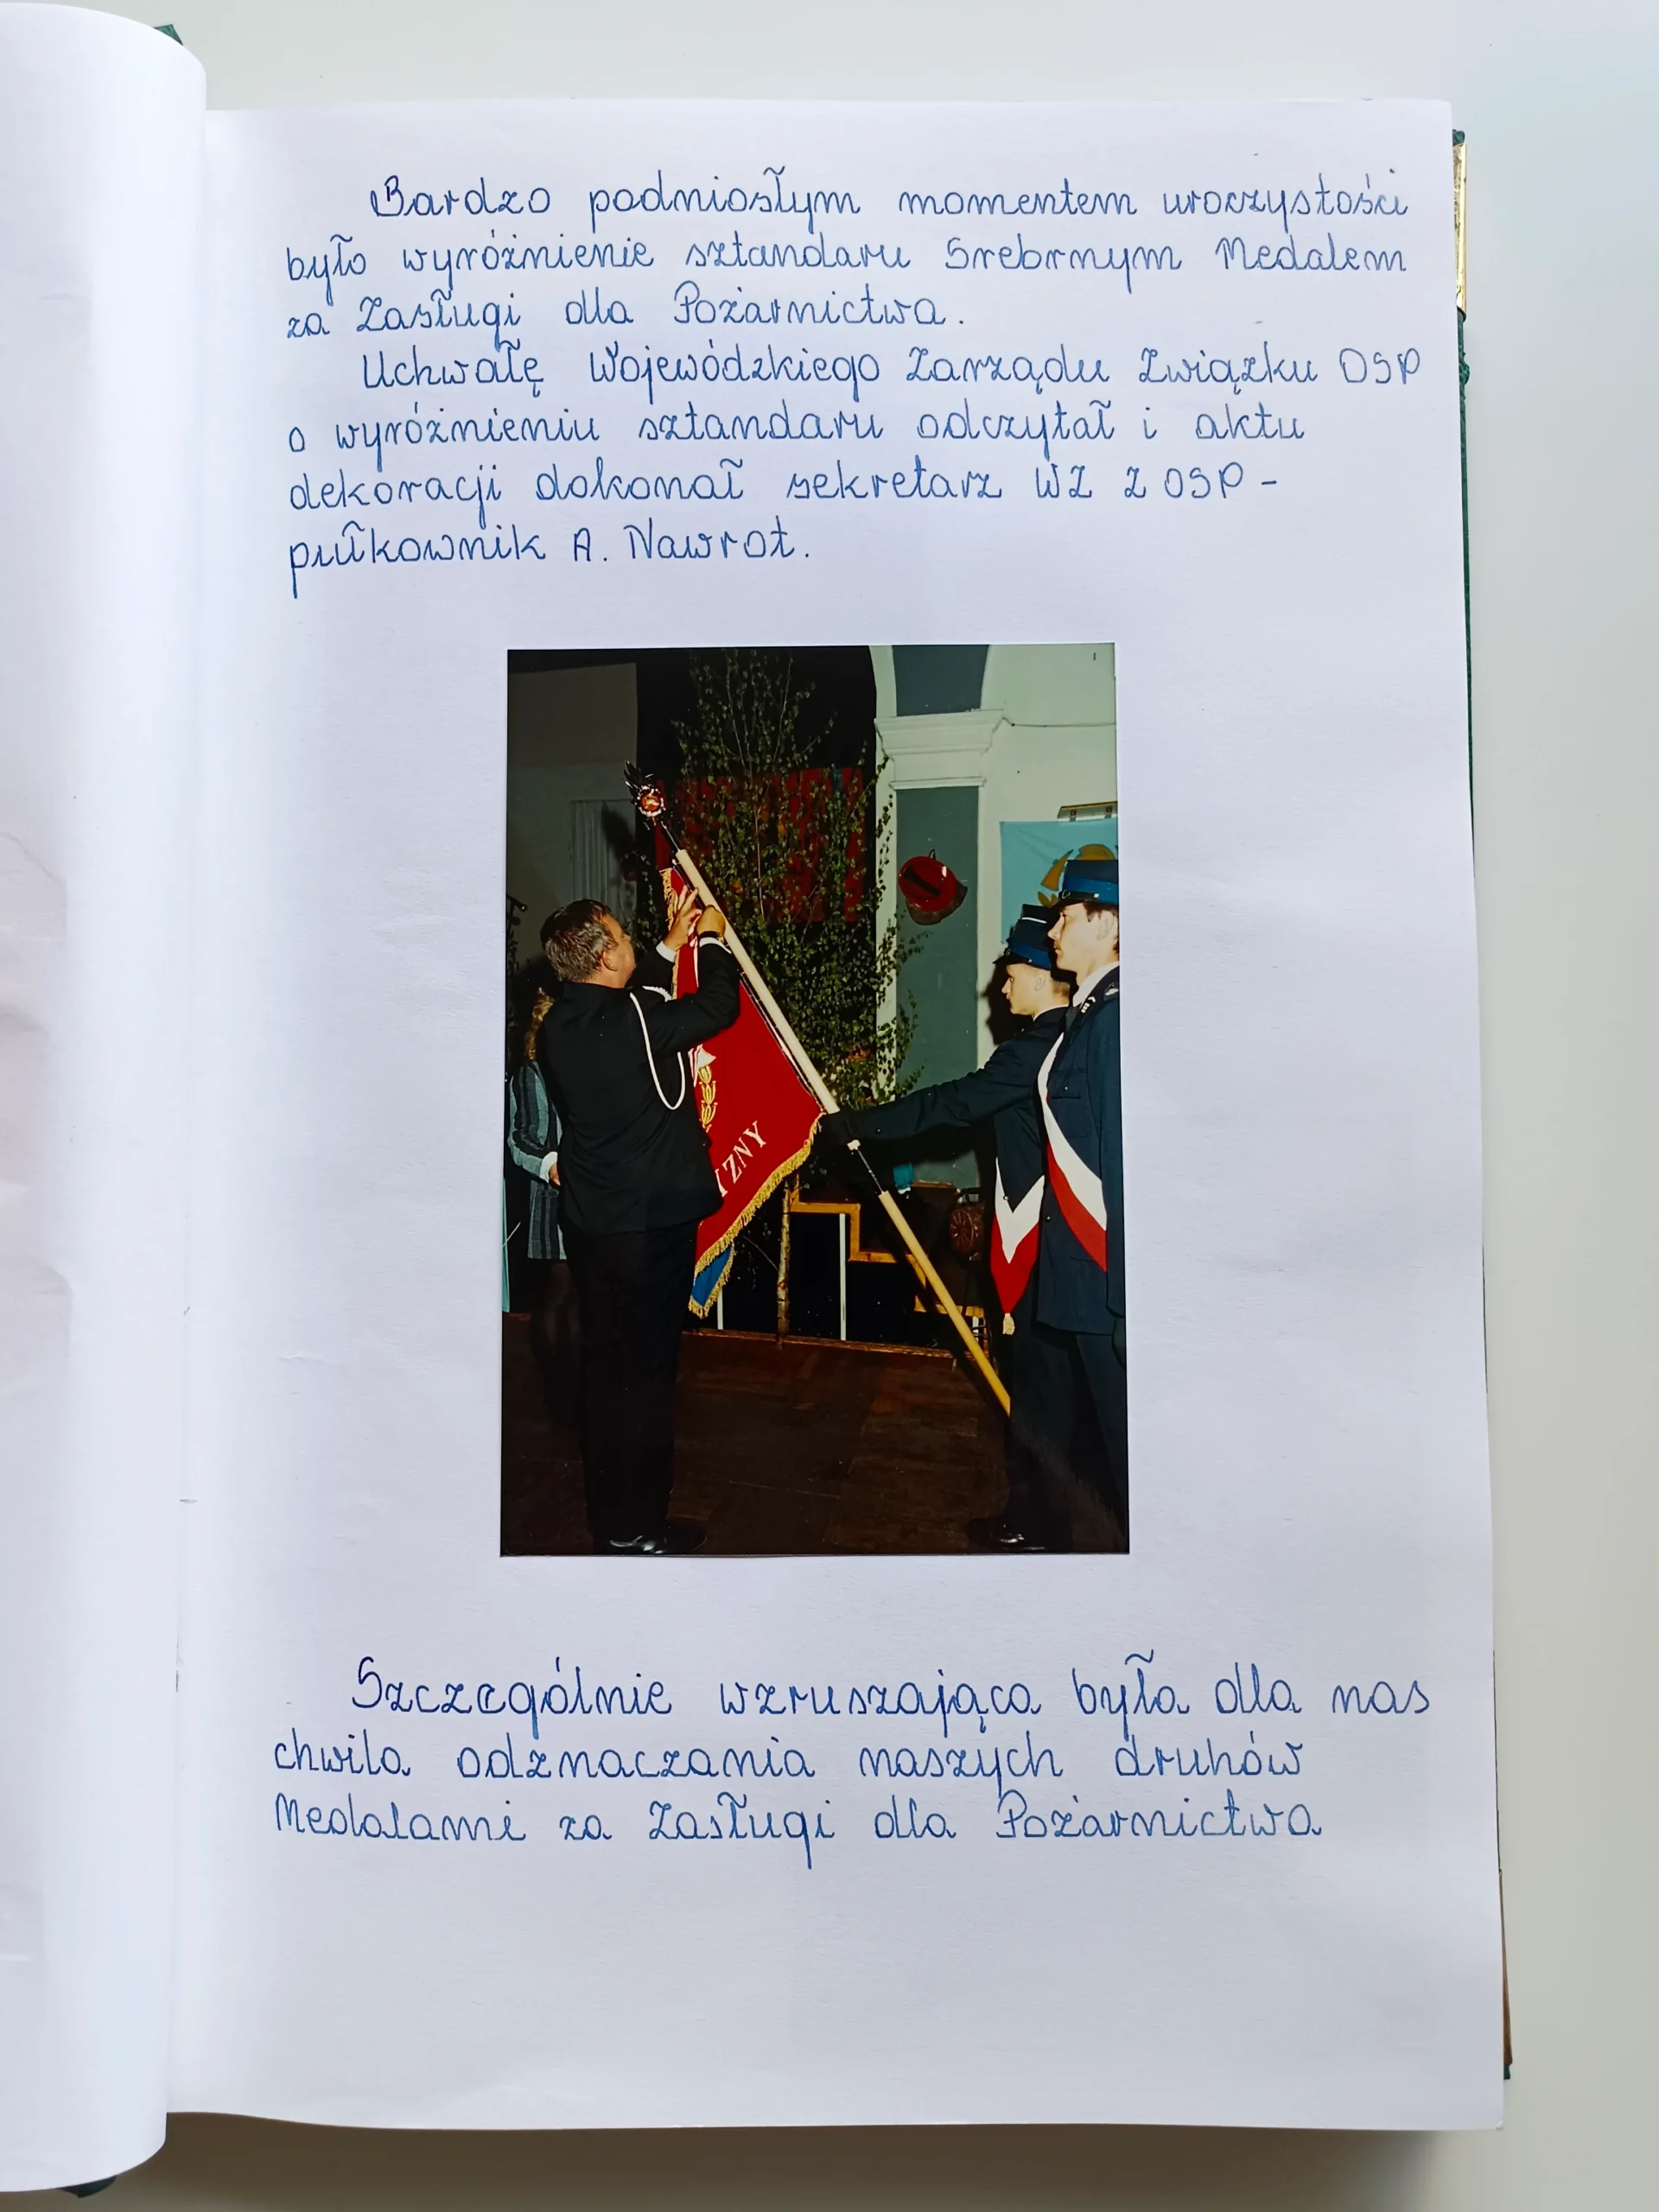 Bardzo podniosłym momentem uroczystości
było wyróżnienie sztandaru Srebrnym Medalem
za Zasługi dla Pożarnictwa.
Uchwałę Wojewódzkiego Zarządu Związku OSP
o wyróżnieniu sztandaru odczytał i aktu
dekoracji dokonał sekretarz WZ Z OSP -
pułkownik A. Nawrot.
IZNY
Szczególnie wzruszająca była dla nas
chwila odznaczania naszych druhów
Medalami za Zasługi dla Pożarnictwa